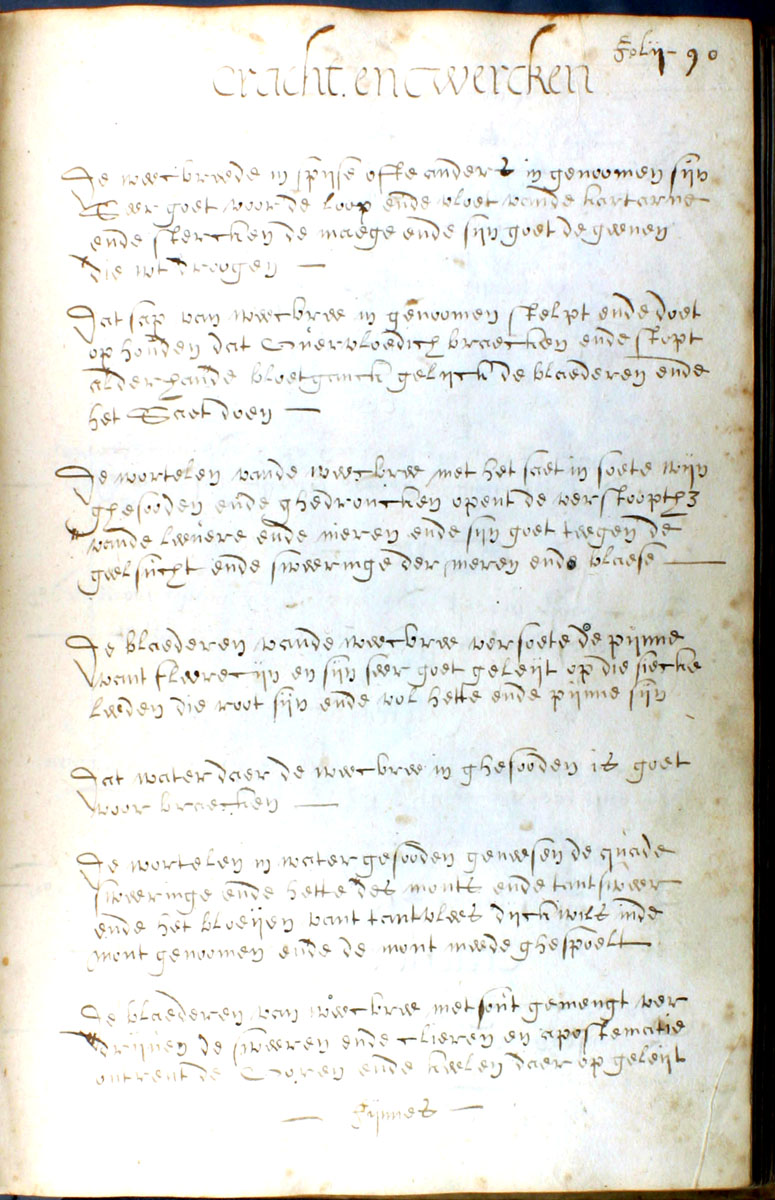 Folij 90
Cracht. en twercken
De weecbreede in spijse ofte anders in genoomen sijn
Seer goet voor de loop ende vloet vande kartarne
ende stercken de maege ende sijn goet de geenen
die wt droogen —
Dat sap van weecbree in genoomen stelpt ende doet
op houden dat Overvloedich braecken ende stopt
alderhande bloetganck gelijck de blaederen ende
het Saet doen —
De wortelen vande weecbree met het saet in soete wijn
ghesooden ende ghedroncken opent de verstoopth3
vande leevere ende nieren ende sijn goet teegen de
geelsucht ende sweeringe der nieren ende blaese —
De blaederen vande weecbree versoete de pijnne
vant fleerecijn en sijn seer goet geleijt op die siecke
leeden die root sijn ende vol hette ende pijnne sijn
Dat water daer de weecbree in ghesooden is goet
voor braecken —
De wortelen in water gesooden geneesen de quade
sweeringe ende hette des monts ende tantsweer
ende het bloeijen vant tantvlees dijckwils inde
mont genoomen ende de mont meede ghespoelt
De blaederen van weecbree met sout gemengt ver
drijven de sweeren ende clieren en apostematie
ontrent de Ooren ende keelen daer op geleijt
— Fijnnes —